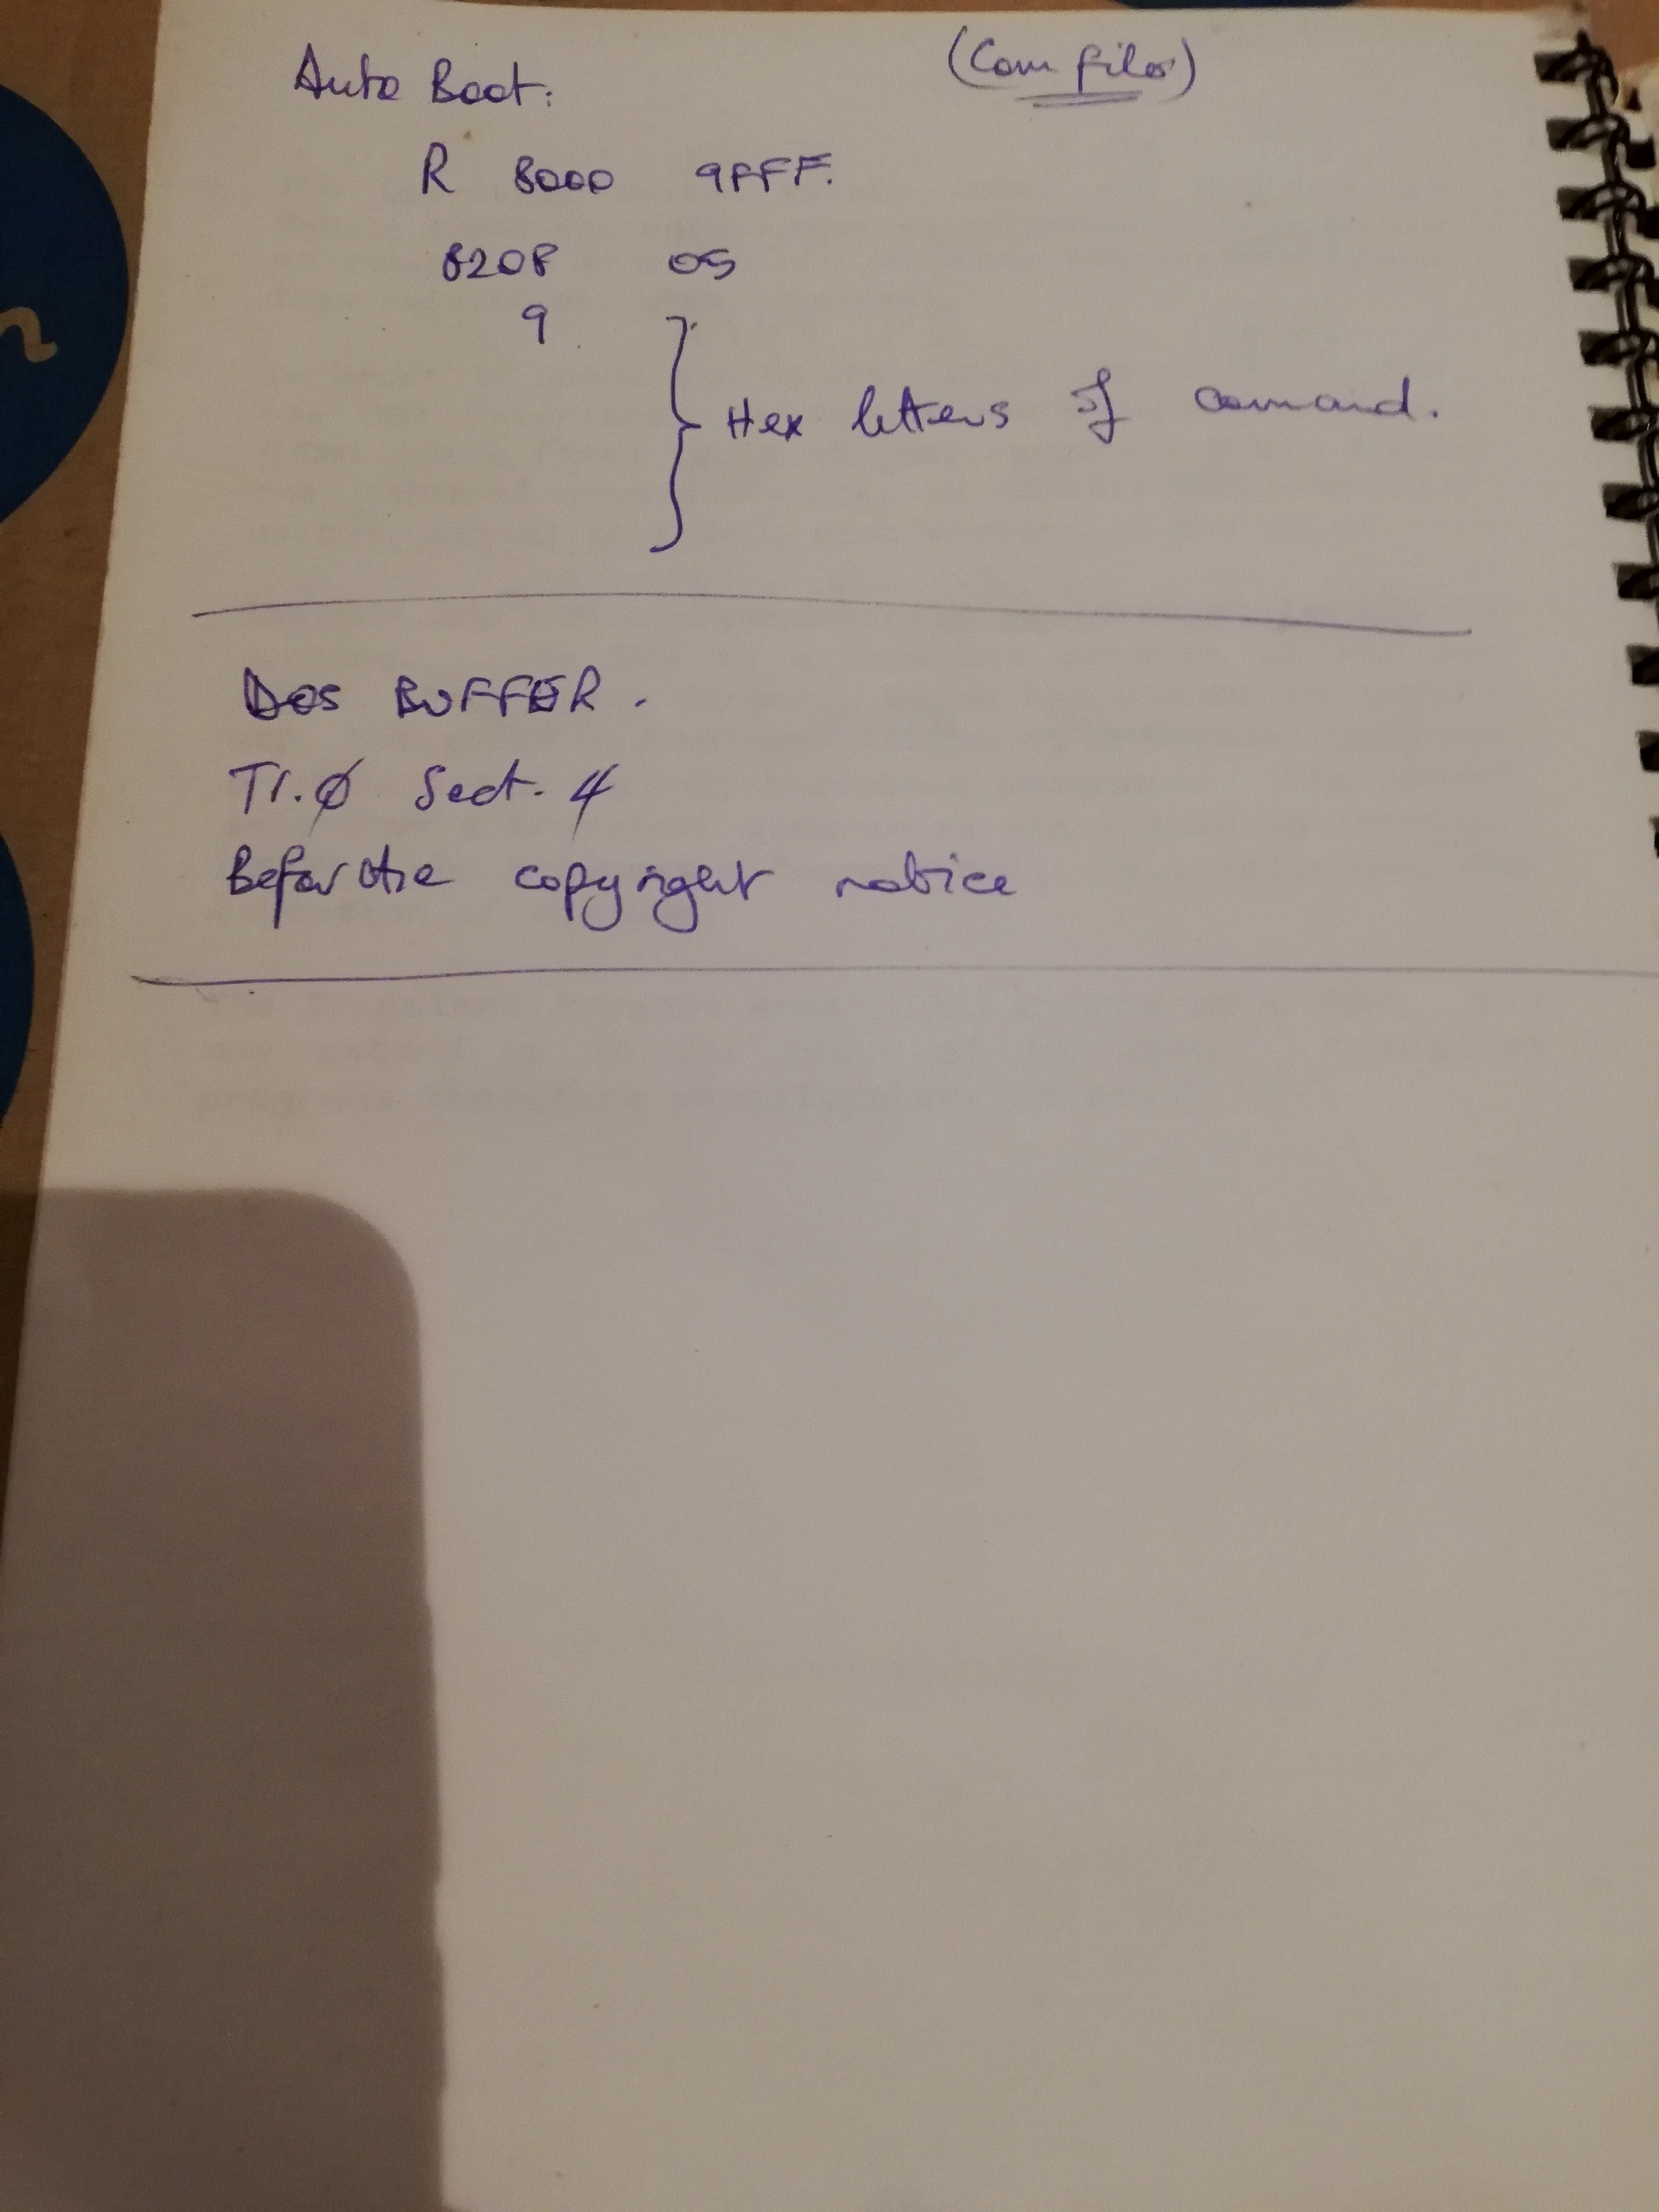 Auto Boot: (Com files)
R 8000 9FFF.
8208 05
9
Hex letters of command.
Dos BUFFER.
Tr.Ø Sect. 4
Before the copyright notice